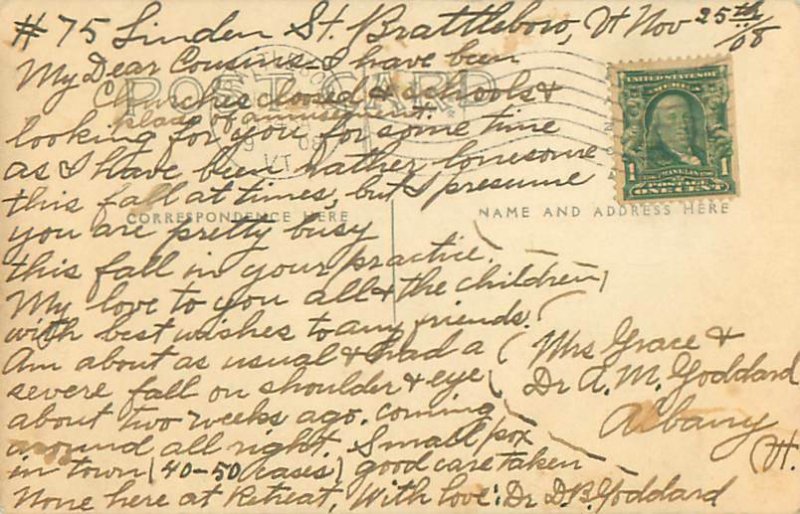 # 75 Linden St. Brattleboro, Vt Nov 25th/08
My Dear Cousins - I have been
Churches closed & schools &
place of amusement.
looking for you for some time
as I have been rather lonesome
this fall at times, but I presume
you are pretty busy
this fall in your practice.
My love to you all & the children,
with best wishes to any friends.
Am about as usual & had a
severe fall on shoulder & eye
about two weeks ago. coming
around all right. Small pox
in town (40-50 cases) good care taken
None here at Retreat, With love: Dr D.B. Goddard
POST CARD
CORRESPONDENCE HERE
NAME AND ADDRESS HERE
Mrs Grace &
Dr A. M. Goddard
Albany
Vt.
UNITED STATES OF AMERICA
FRANKLIN
1 1
POSTAGE
ONE CENT
08
VT